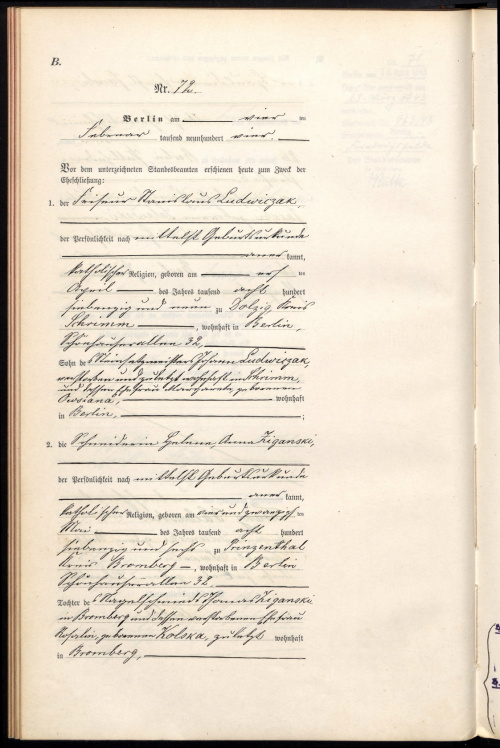 B.
Nr. 72.
Berlin am vier ten
Februar tausend neunhundert vier.
Vor dem unterzeichneten Standesbeamten erschienen heute zum Zweck der
Eheschließung:
1. der Friseur Stanislaus Ludwiczak,
der Persönlichkeit nach mittelst Geburtsurkunde
aner kannt,
katholischer Religion, geboren am ten
April des Jahres tausend acht hundert
siebenzig und neun zu Dolzig Kreis
Schrimm, wohnhaft in Berlin,
Schönhauserallee 32,
Sohn des Steinsetzmeisters Johann Ludwiczak,
verstorben und zuletzt wohnhaft in Schrimm,
und dessen Ehefrau Margareta, geborenen
wohnhaft
in Berlin, ;
2. die Schneiderin Helene, Anna Ziganski,
der Persönlichkeit nach mittelst Geburtsurkunde
aner kannt,
katholischer Religion, geboren am vier und zwanzigsten
Mai des Jahres tausend acht hundert
siebenzig und sechs zu Prinzenthal
Kreis Bromberg, wohnhaft in Berlin
Schönhauserallee 32.
Tochter des Nagelschmieds Thomas Ziganski
in Bromberg und dessen verstorbenen Ehefrau
Rosalie, geborenen Kolska, zuletzt wohnhaft
in Bromberg,